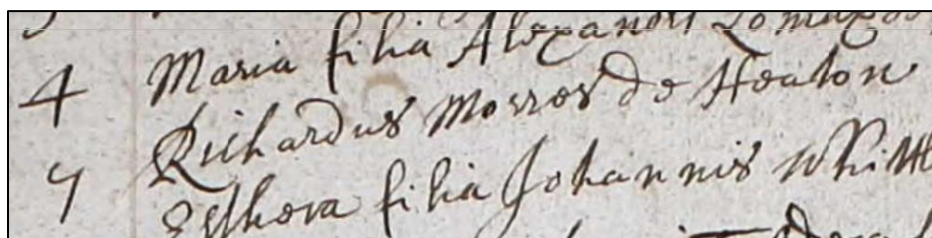 4 Maria filia Alexandri Lomax
Richardus Morres de Heaton
7 Esthera filia Johannis Whittl